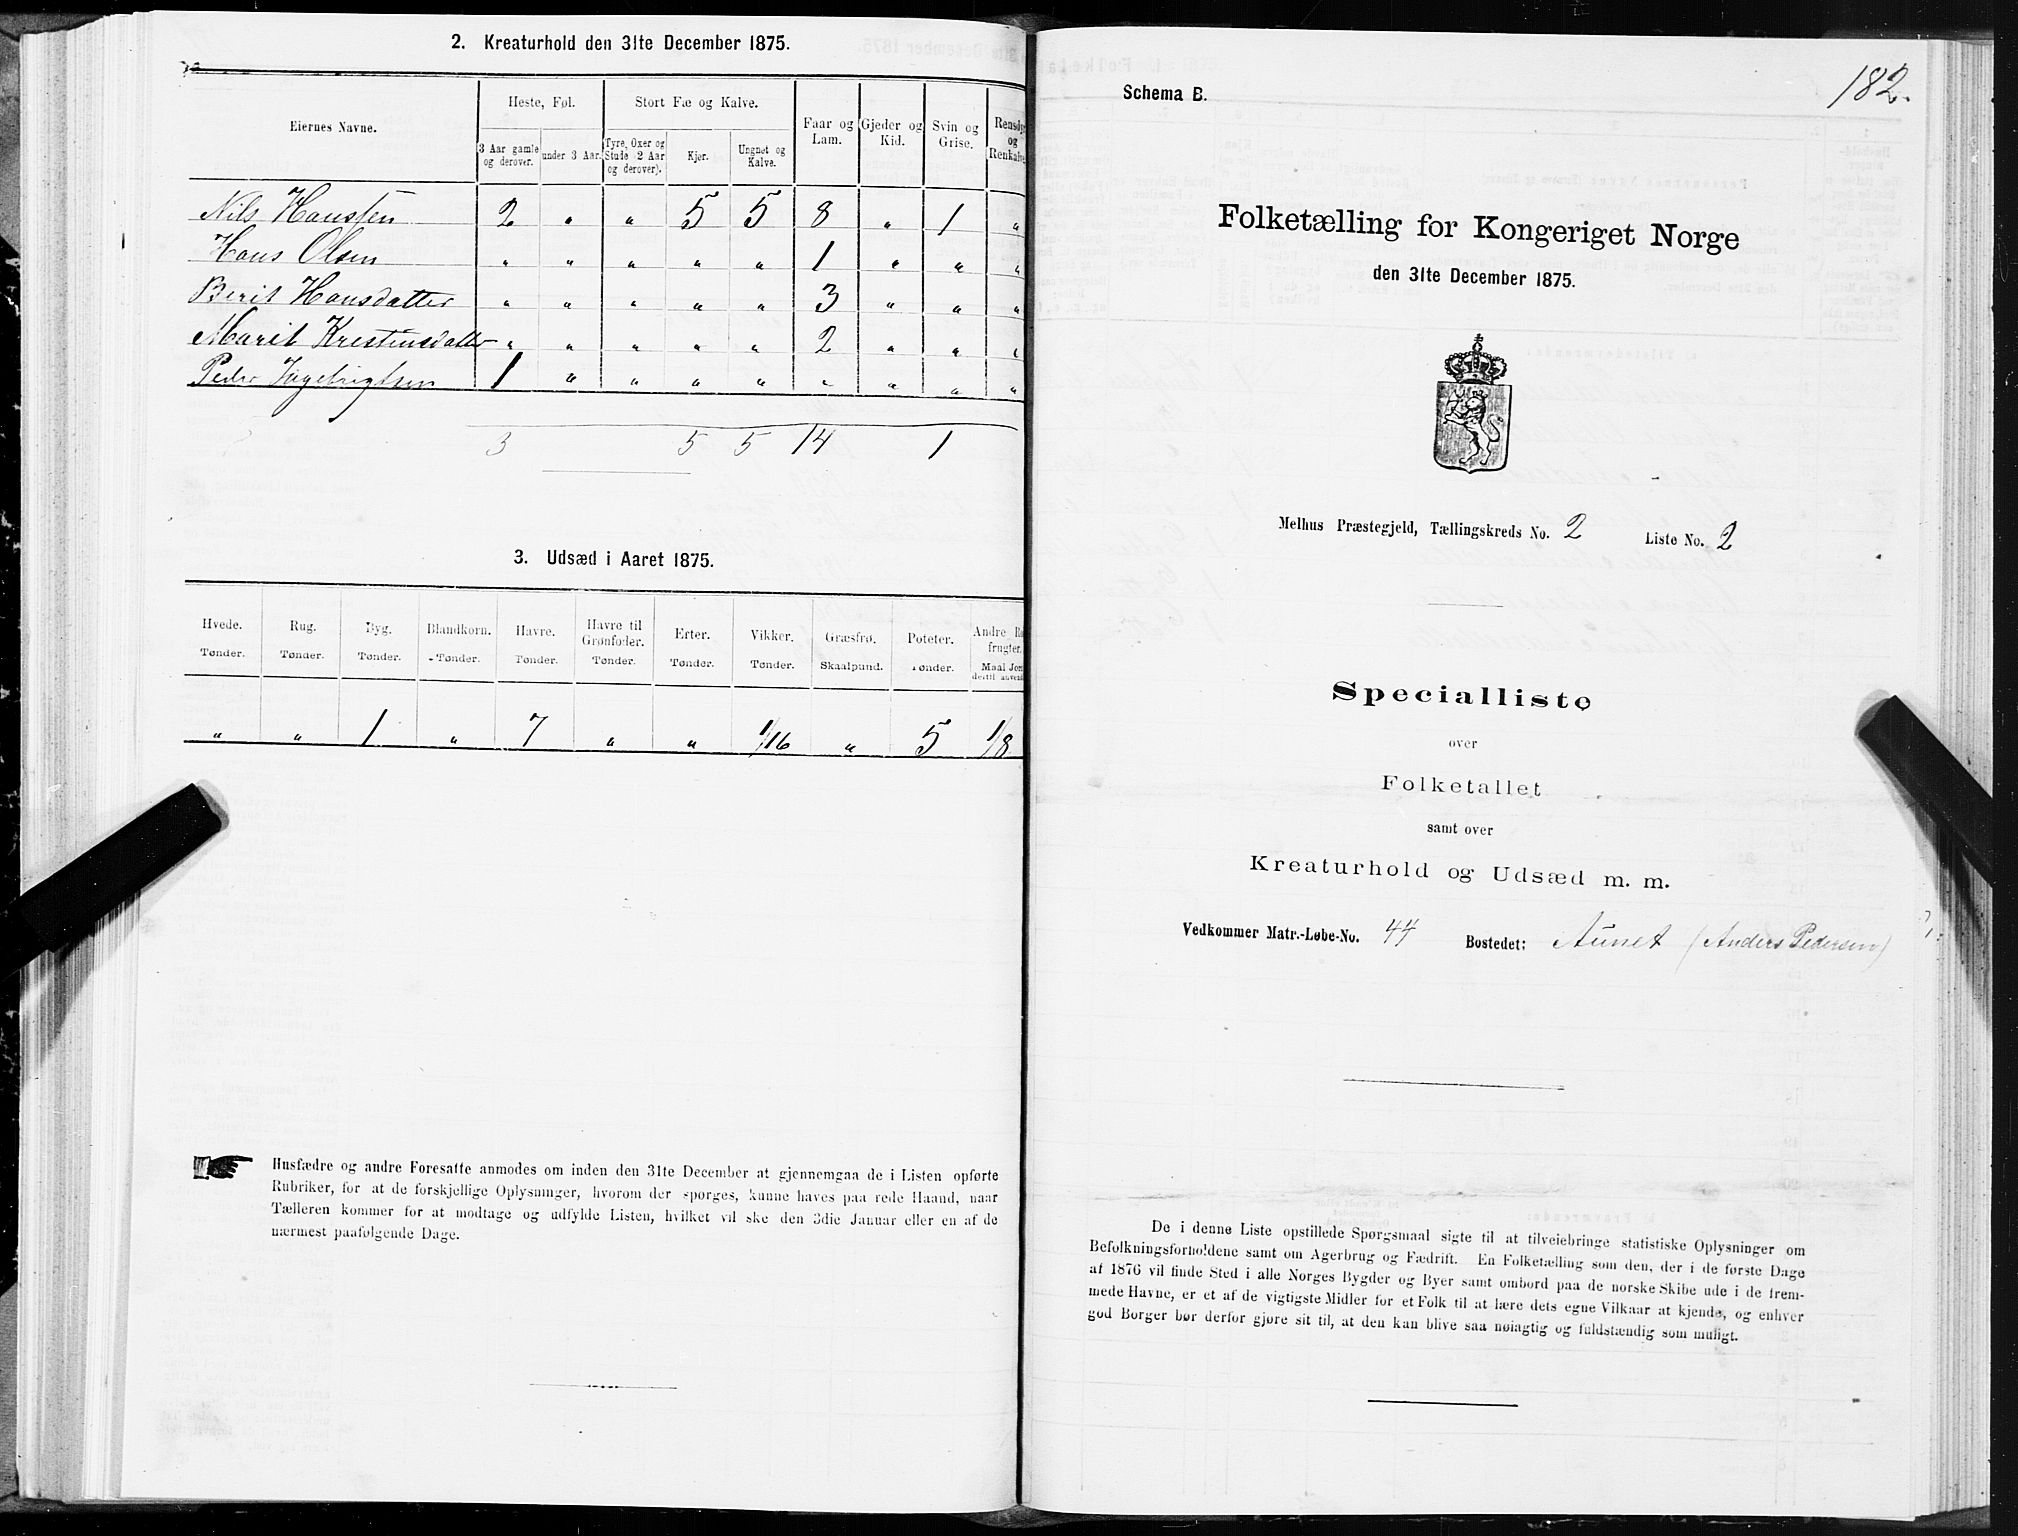 2. Kreaturhold den 31te December 1875.
Eiernes Navne.
Heste, Føl.
Stort Fæ og Kalve.
Faar og Lam.
Gjeder og Kid.
Svin og Grise.
Rensdyr og Renkalve
3 Aar gamle og derover.
under 3 Aar.
Tyre, Oxer og Stude (2 Aar og derover).
Kjør.
Ungnet og Kalve.
Nils Hanssen 2 " " 5 5 8 " 1 "
Hans Olsen " " " " " 1 " " "
Berit Hansdatter " " " " " 3 " " "
Marit Krestensdatter " " " " " 2 " " "
Peder Ingebrigtsen 1 " " " " " " " "
3 5 5 14 1
3. Udsæd i Aaret 1875.
Hvede. Rug. Byg. Blandkorn. Havre. Havre til Grønfoder. Erter. Vikker. Græsfrø. Poteter. Andre
frugter.
Tønder. Tønder. Tønder. Tønder. Tønder. Tønder. Tønder. Tønder. Skaalpund. Tønder. Maal Jord
dertil
" " 1 " 7 " " 1/16 " 5 1/8
Husfædre og andre Foresatte anmodes om inden den 31te December at gjennemgaa de i Listen opførte
Rubriker, for at de forskjellige Oplysninger, hvorom der spørges, kunne haves paa rede Haand, naar
Tælleren kommer for at modtage og udfylde Listen, hvilket vil ske den 3die Januar eller en af de
nærmest paafølgende Dage.
182.
Schema B.
Folketælling for Kongeriget Norge
den 31te December 1875.
Melhus Præstegjeld, Tællingskreds No. 2 Liste No. 2
Specialliste
over
Folketallet
samt over
Kreaturhold og Udsæd m. m.
Vedkommer Matr.-Løbe-No. 44 Bostedet: Aunet (Anders Pedersen) ?.
De i denne Liste opstillede Spørgsmaal sigte til at tilveiebringe statistiske Oplysninger om
Befolkningsforholdene samt om Agerbrug og Fædrift. En Folketælling som den, der i de første Dage
af 1876 vil finde Sted i alle Norges Bygder og Byer samt ombord paa de norske Skibe ude i de frem-
mede Havne, er et af de vigtigste Midler for et Folk til at lære dets egne Vilkaar at kjende, og enhver
god Borger bør derfor gjøre sit til, at den kan blive saa nøiagtig og fuldstændig som muligt.